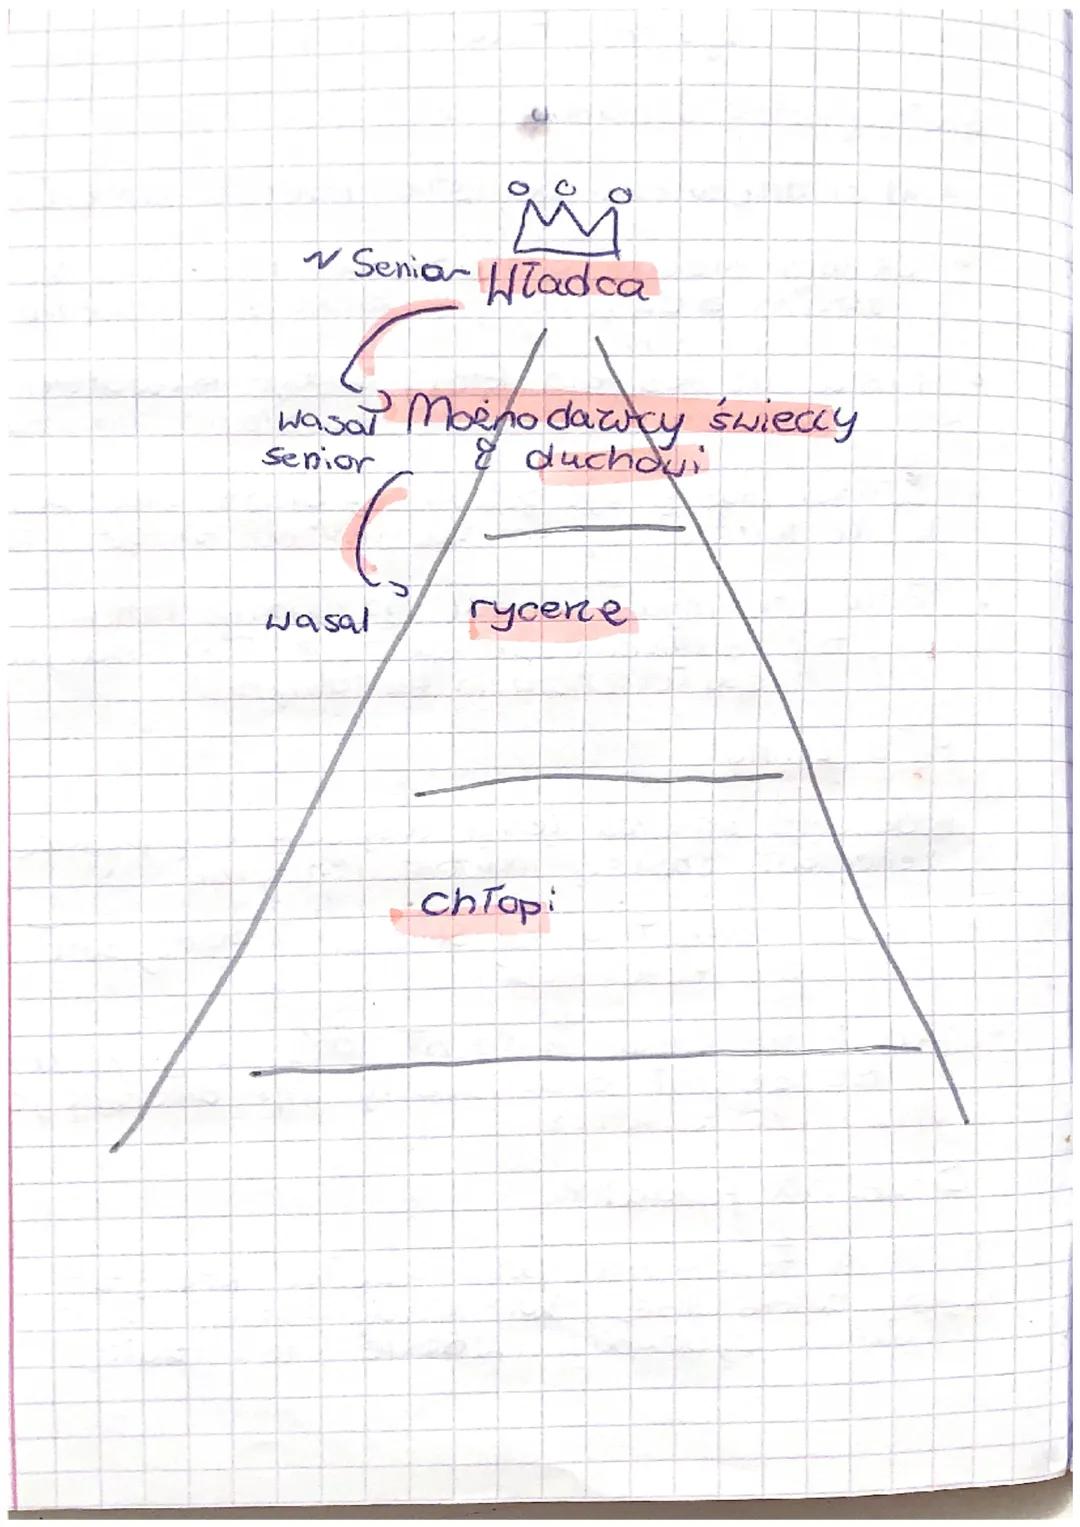 Senior Władca
wasal Możnodawcy świeccy
senior & duchowi
wasal rycerze
chłopi